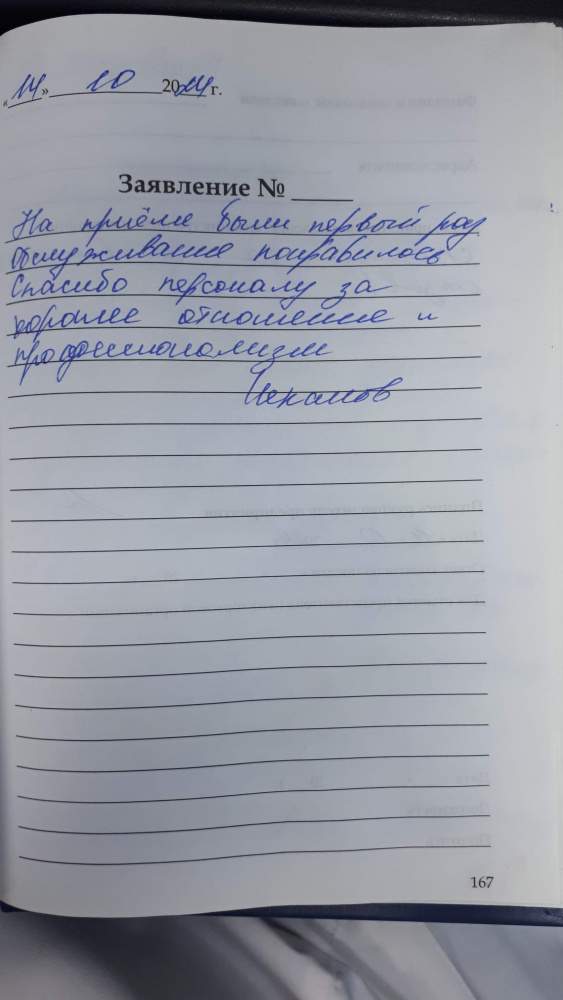 «14» 10 2024 г.
Заявление № _____
На приёме были первый раз
Обслуживание понравилось
Спасибо персоналу за
хорошее отношение и
профессионализм
167